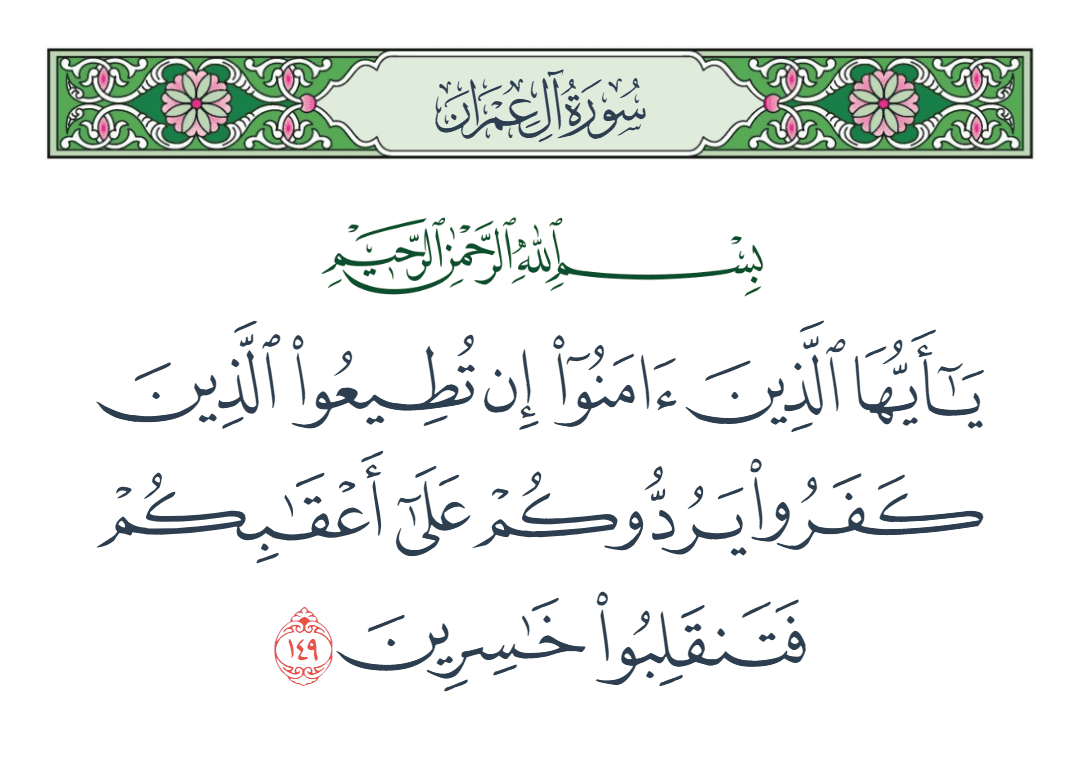 سُورَةُ آلِ عِمْرَانَ
بِسْمِ ٱللَّهِ ٱلرَّحْمَٰنِ ٱلرَّحِيمِ
يَـٰٓأَيُّهَا ٱلَّذِينَ ءَامَنُوٓا۟ إِن تُطِيعُوا۟ ٱلَّذِينَ
كَفَرُوا۟ يَرُدُّوكُمْ عَلَىٰٓ أَعْقَـٰبِكُمْ
فَتَنقَلِبُوا۟ خَـٰسِرِينَ ١٤٩